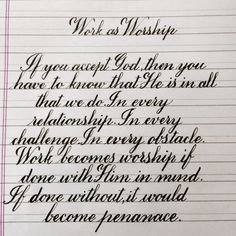 Work as Worship
If you accept God, then you
have to know that He is in all
that we do. In every
relationship. In every
challenge. In every obstacle.
Work becomes worship if
done with Him in mind.
If done without, it would
become penanace.